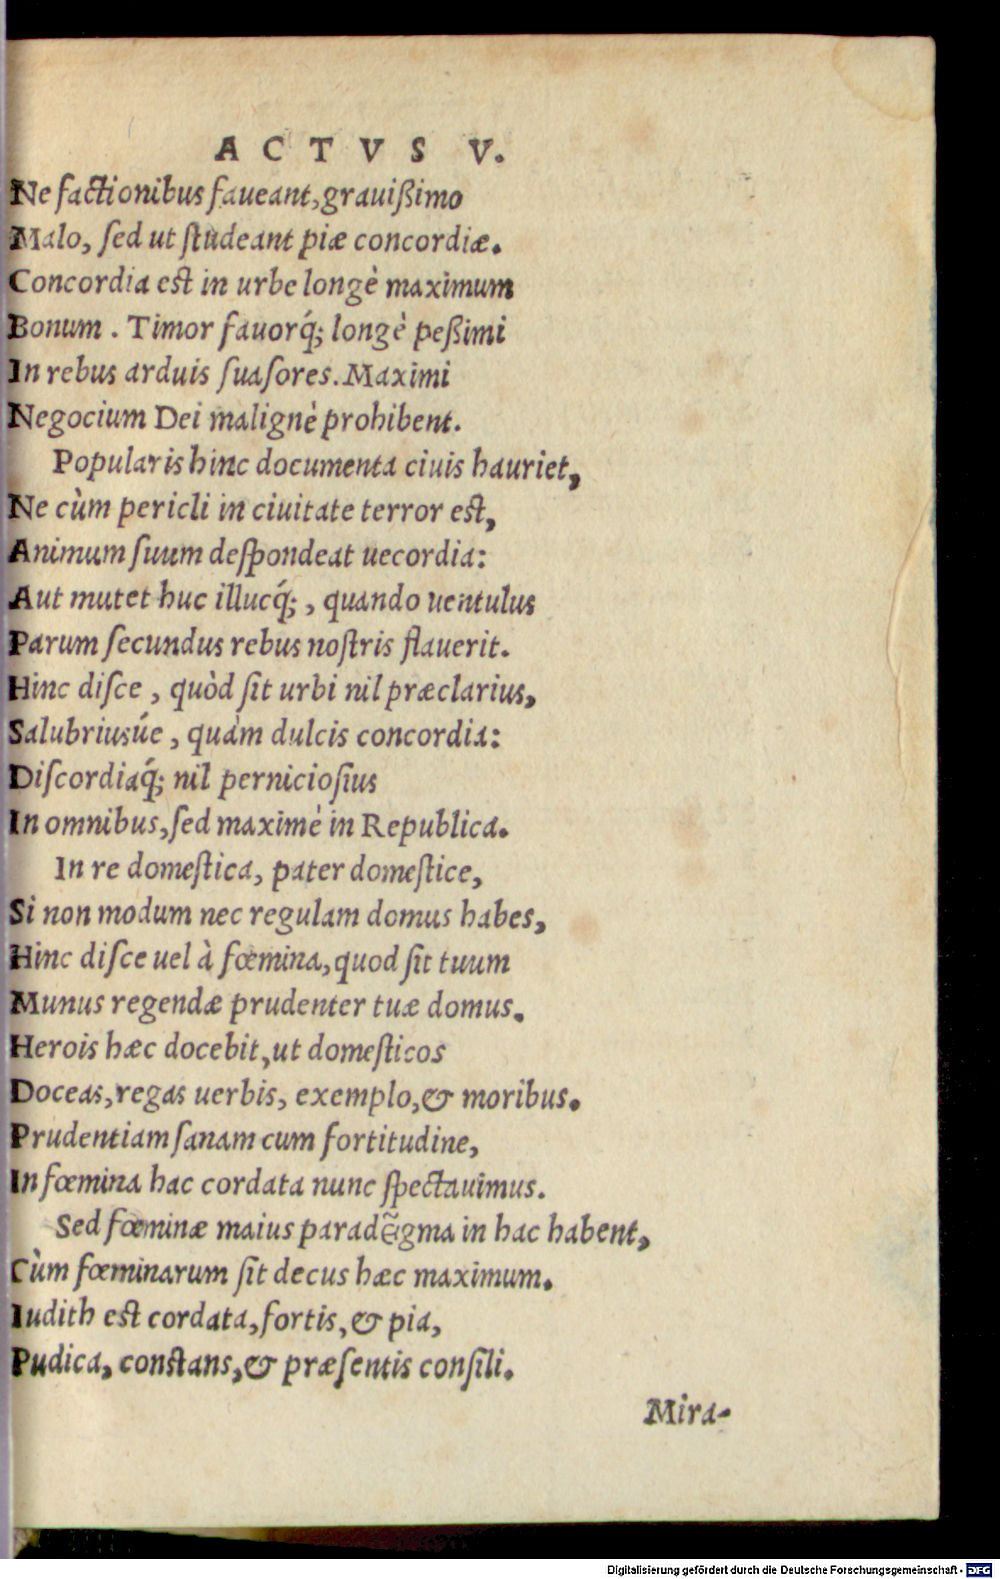 ACTVS V.
Ne factionibus faveant, grauißimo
Malo, ſed ut ſtudeant piæ concordiæ.
Concordia eſt in urbe longè maximum
Bonum. Timor fauorq́; longè peßimi
In rebus arduis ſuaſores. Maximi
Negocium Dei malignè prohibent.
Popularis hinc documenta ciuis hauriet,
Ne cùm pericli in ciuitate terror eſt,
Animum ſuum deſpondeat uecordia:
Aut mutet huc illucq́;, quando uentulus
Parum ſecundus rebus noſtris flauerit.
Hinc diſce, quòd ſit urbi nil præclarius,
Salubriusúe, quàm dulcis concordia:
Diſcordiaq́; nil perniciosius
In omnibus, ſed maximè in Republica.
In re domeſtica, pater domeſtice,
Si non modum nec regulam domus habes,
Hinc diſce uel à fœmina, quod ſit tuum
Munus regendæ prudenter tuæ domus.
Herois hæc docebit, ut domeſticos
Doceas, regas uerbis, exemplo, & moribus.
Prudentiam ſanam cum fortitudine,
In fœmina hac cordata nunc ſpectauimus.
Sed fœminæ maius in hac habent,
Cùm fœminarum ſit decus hæc maximum.
Iudith eſt cordata, fortis, & pia,
Pudica, conſtans, & præſentis conſili.
Mira-
Digitalisierung gefördert durch die Deutsche Forschungsgemeinschaft - DFG